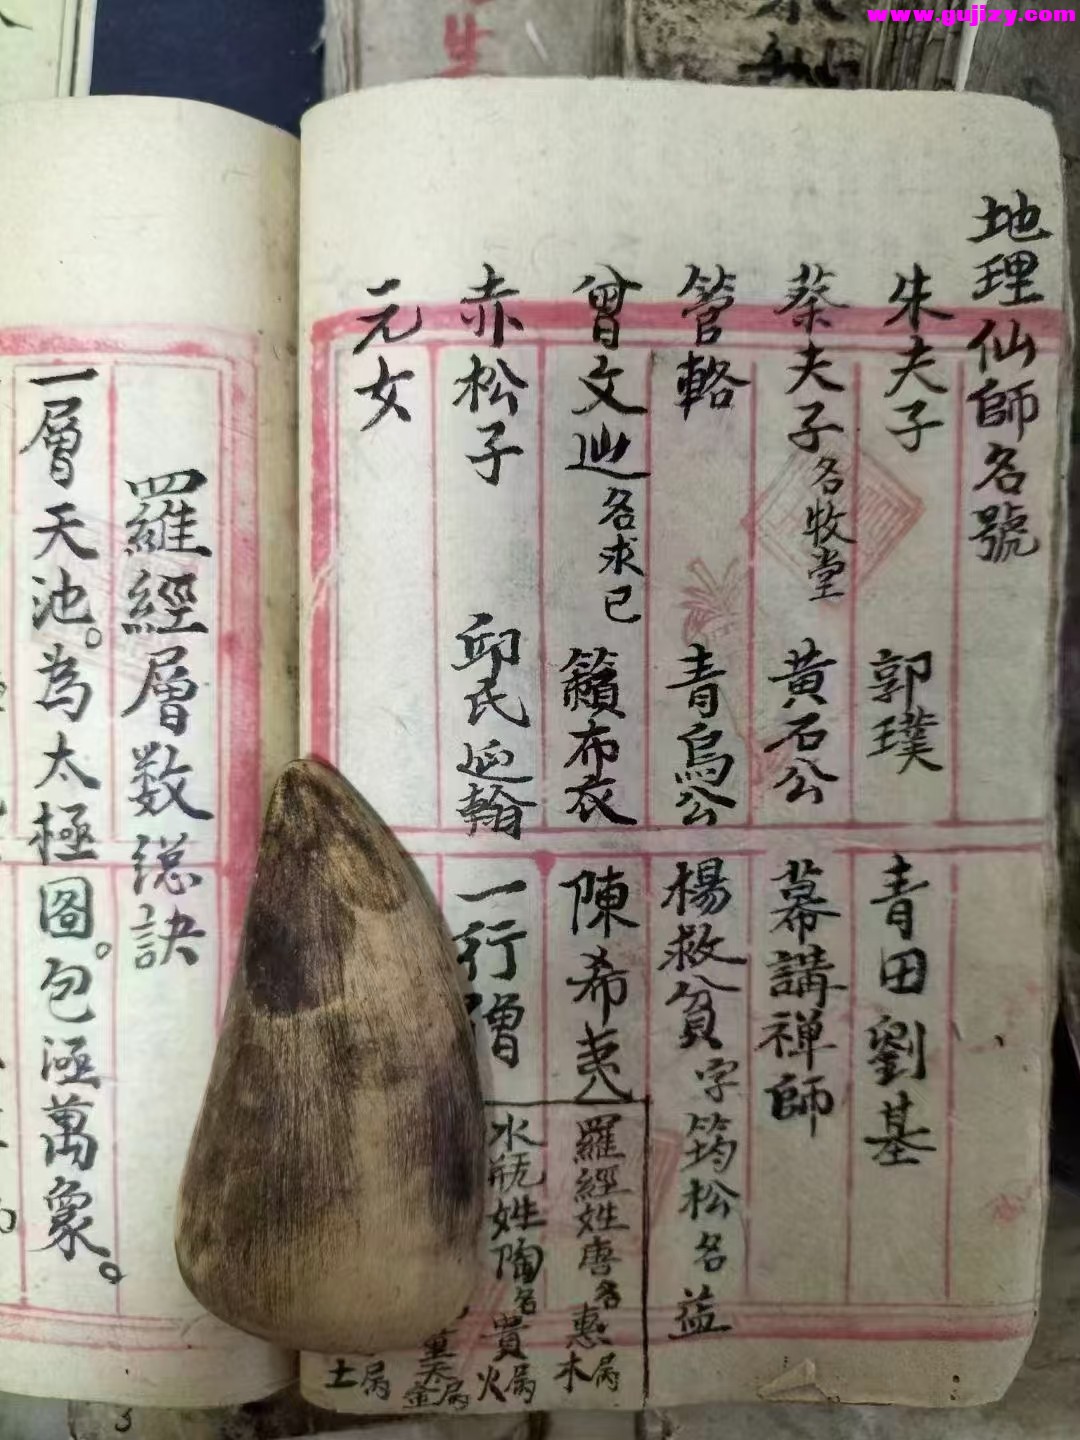 www.gujizy.com
地理仙師名號
朱夫子 郭璞 青田劉基
蔡夫子名牧堂 黃石公 幕講禅師
管輅 青烏公 楊救貧字筠松名益
曾文辿名求己 籟布衣 陳希夷
赤松子 邱氏延翰 一行禪
元女
羅經姓唐名惠 木屬
水瓶姓陶名貴 火屬
金屬
土屬
羅經層数總訣
一層天池。為太極图。包涵萬象。
3